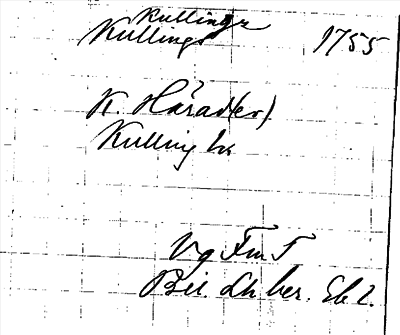 Kullings
Kullings 1755
K. Härad(er).
Kulling hs
Vg FmT
Bil. Lh ber.